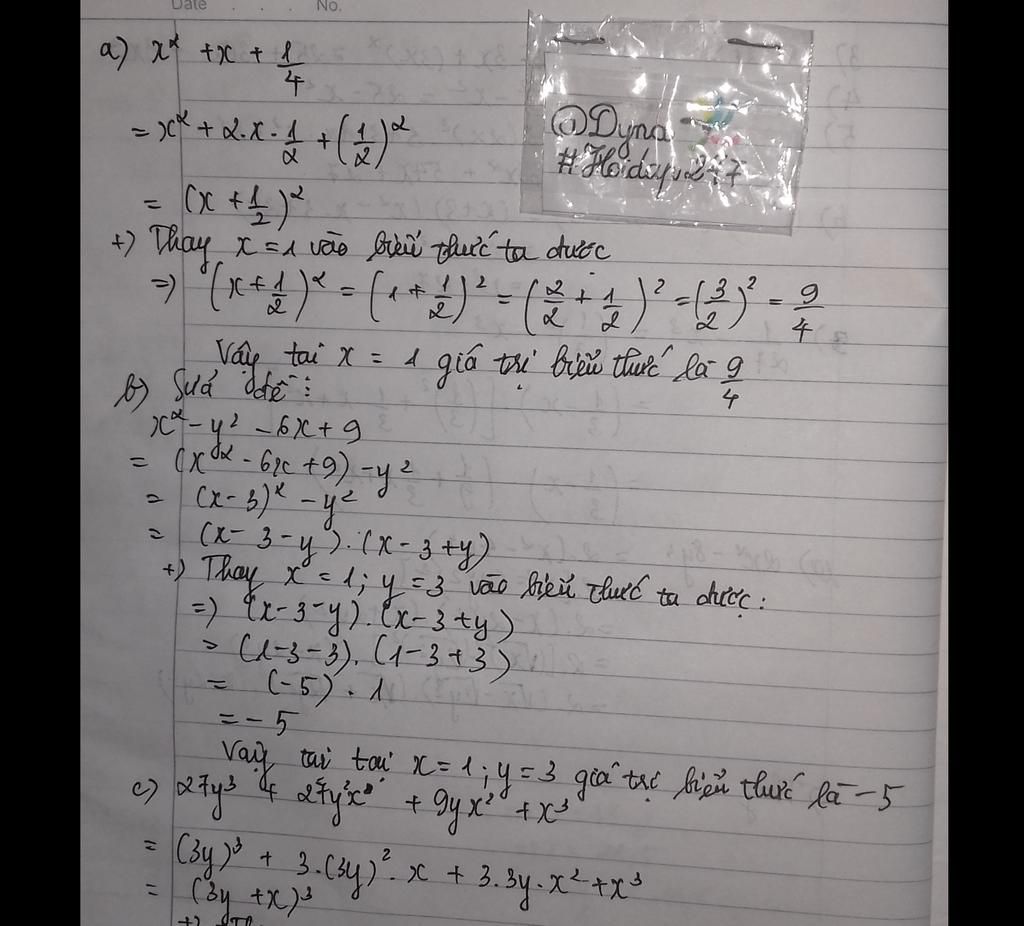 Date No.
a) x² + x + 1/4
= x² + 2.x.1/2 + (1/2)²
= (x + 1/2)²
@Dyna
#Hoidap247
+) Thay x = 1 vào biểu thức ta được
=> (x + 1/2)² = (1 + 1/2)² = (2/2 + 1/2)² = (3/2)² = 9/4
Vậy tại x = 1 giá trị biểu thức là 9/4
b) Sửa đề :
x² - y² - 6x + 9
= (x² - 6x + 9) - y²
= (x - 3)² - y²
= (x - 3 - y).(x - 3 + y)
+) Thay x = 1; y = 3 vào biểu thức ta được :
=> (x - 3 - y).(x - 3 + y)
= (1 - 3 - 3).(1 - 3 + 3)
= (-5) . 1
= - 5
Vậy tai tại x = 1 ; y = 3 giá trị biểu thức là - 5
c) 27y³ + 27y²x + 9yx² + x³
= (3y)³ + 3.(3y)².x + 3.3y.x² + x³
= (3y + x)³